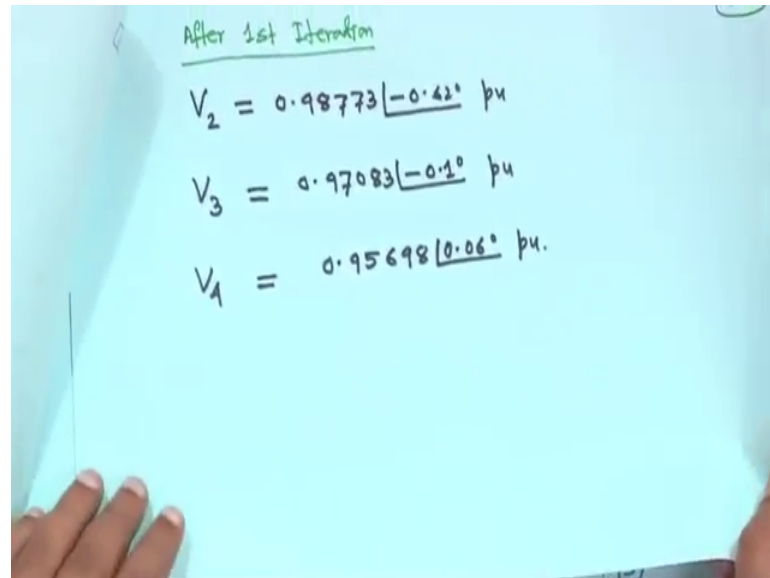 After 1st Iteration
V₂ = 0.98773∠-0.42° pu
V₃ = 0.97083∠-0.1° pu
V₄ = 0.95698∠0.06° pu.